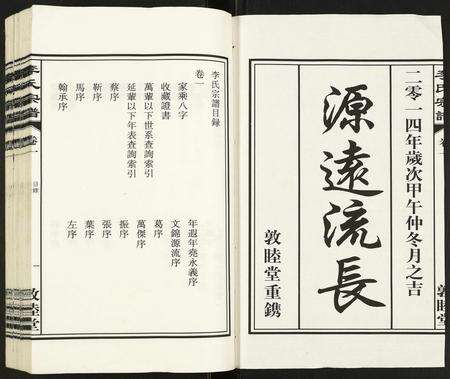 二零一四年歲次甲午仲冬月之吉
源遠流長
敦睦堂重鐫
李氏宗譜
卷一
敦睦堂
李氏宗譜目錄
卷一
家乘八字
收藏證書
萬輩以下世系查詢索引
延輩以下年表查詢索引
蔡序
靳序
馬序
翰承序
年遐年堯永義序
文錦源流序
葛序
萬傑序
振序
張序
葉序
左序
李氏宗譜
卷一
目錄
一
敦睦堂